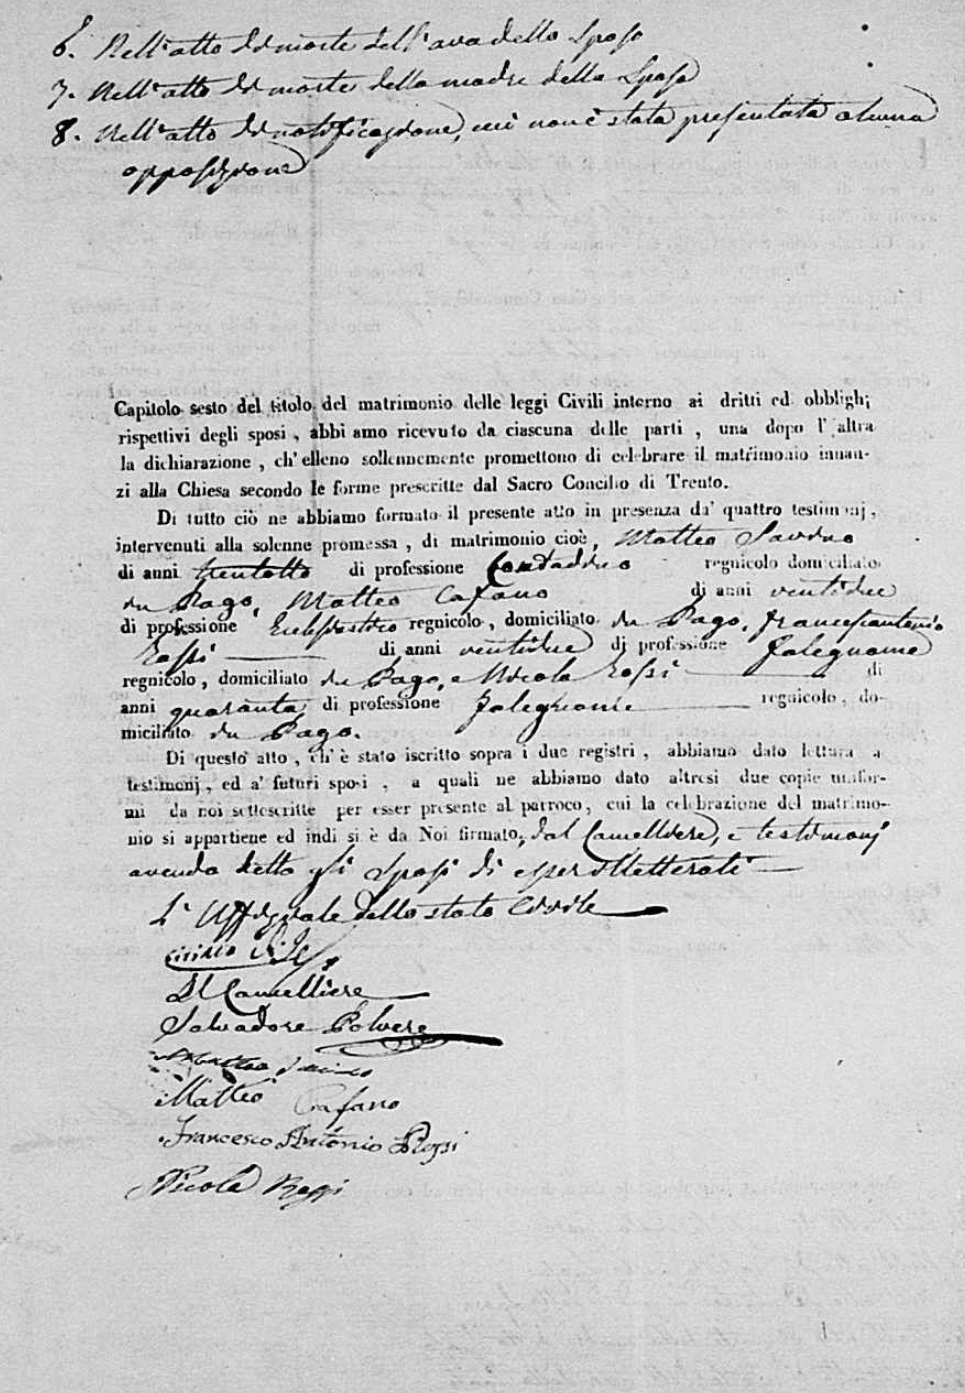 6. Nell'atto di morte dell'ava dello Sposo
7. Nell'atto di morte della madre della Sposa
8. Nell'atto di notificazione, cui non è stata presentata alcuna
opposizione
Capitolo sesto del titolo del matrimonio delle leggi Civili interno ai dritti ed obblighi
rispettivi degli sposi, abbiamo ricevuto da ciascuna delle parti, una dopo l'altra
la dichiarazione, ch'elleno sollennemente promettono di celebrare il matrimonio innan-
zi alla Chiesa secondo le forme prescritte dal Sacro Concilio di Trento.
Di tutto ciò ne abbiamo formato il presente atto in presenza da' quattro testimonj,
intervenuti alla solenne promessa, di matrimonio cioè, Matteo
di anni trentotto di professione Contadino regnicolo domiciliato
in Pago, Matteo Cafano di anni ventidue
di professione Eclesiastico regnicolo, domiciliato in Pago, Francescantonio
Rossi di anni ventidue di professione falegname
regnicolo, domiciliato in Pago, e Nicola Rossi di
anni quaranta di professione falegname regnicolo, do-
miciliato in Pago.
Di questo atto, ch'è stato iscritto sopra i due registri, abbiamo dato lettura a
testimonj, ed a' futuri sposi, a quali ne abbiamo dato altresi due copie unifor-
mi da noi sottoscritte per esser presente al parroco, cui la celebrazione del matrimo-
nio si appartiene ed indi si è da Noi firmato, dal Cancelliere, e testimonj
avendo detto gli Sposi di essere illetterati
L'Uffiziale dello stato Civile
Il Cancelliere
Salvadore Polvere
Matteo
Matteo Cafano
Francesco Antonio Rossi
Nicola Rossi